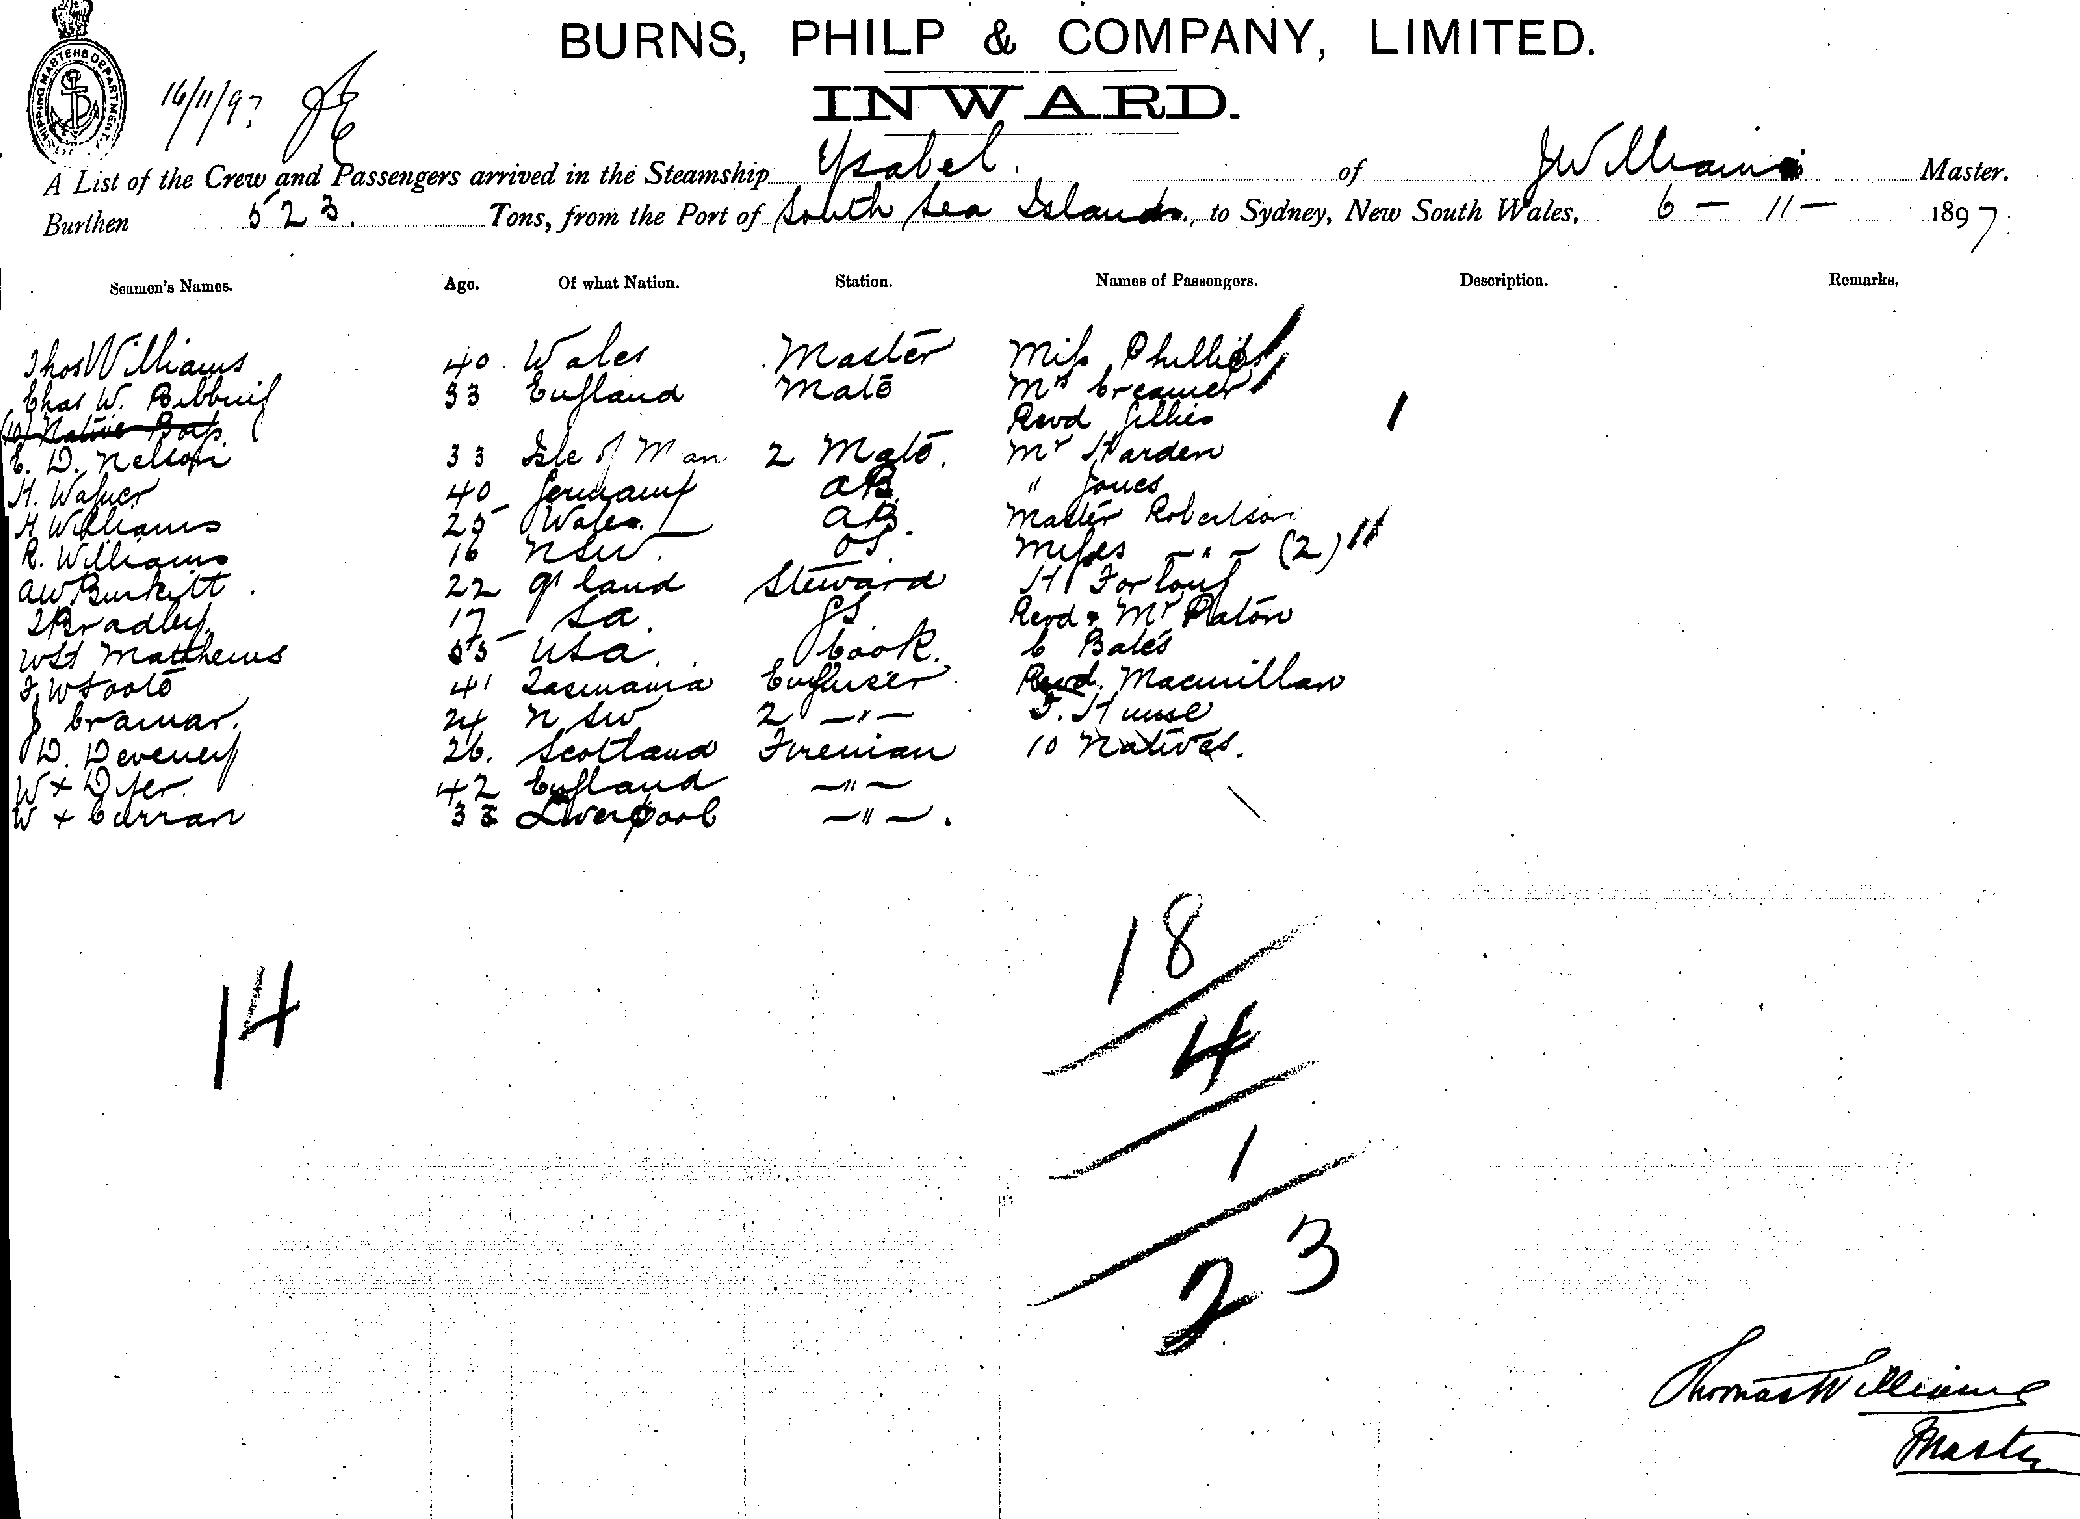 BURNS, PHILP & COMPANY, LIMITED.
INWARD.
SHIPPING MASTERS DEPARTMENT
16/11/97
A List of the Crew and Passengers arrived in the Steamship Ysabel. of J Williams Master.
Burthen 523. Tons, from the Port of South Sea Islands, to Sydney, New South Wales, 6 - 11 - 1897.
Seamen's Names. Age. Of what Nation. Station. Names of Passengers. Description. Remarks.
Thos Williams 40 Wales Master Miss Phillips
Chas W. Bibbing 33 England Mate Mrs Creamer
(10) Native Boys. Revd Gillies 1
E. D. Nelson 33 Isle of Man 2 Mate. Mr Harden
H. Wagner 40 Germany AB " Jones
H Williams 25 Wales AB. Master Robertson
R. Williams 16 NSW. OS. Misses - " - (2)
AW Burkitt 22 Qsland Steward H Forlong
Bradley 17 SA. GS Revd & Mr Paton
WH Matthews 55 USA. Cook. C Bates
F W Foote 41 Tasmania Engineer Revd. Macmillan
J Cramar. 24 NSW 2 - " - F.
D. Deveney 26. Scotland Fireman 10 Natives.
W x Dyer 42 England - " -
W x Curran 33 Liverpool - " - .
14
18
4
1
23
Thomas Williams
Master